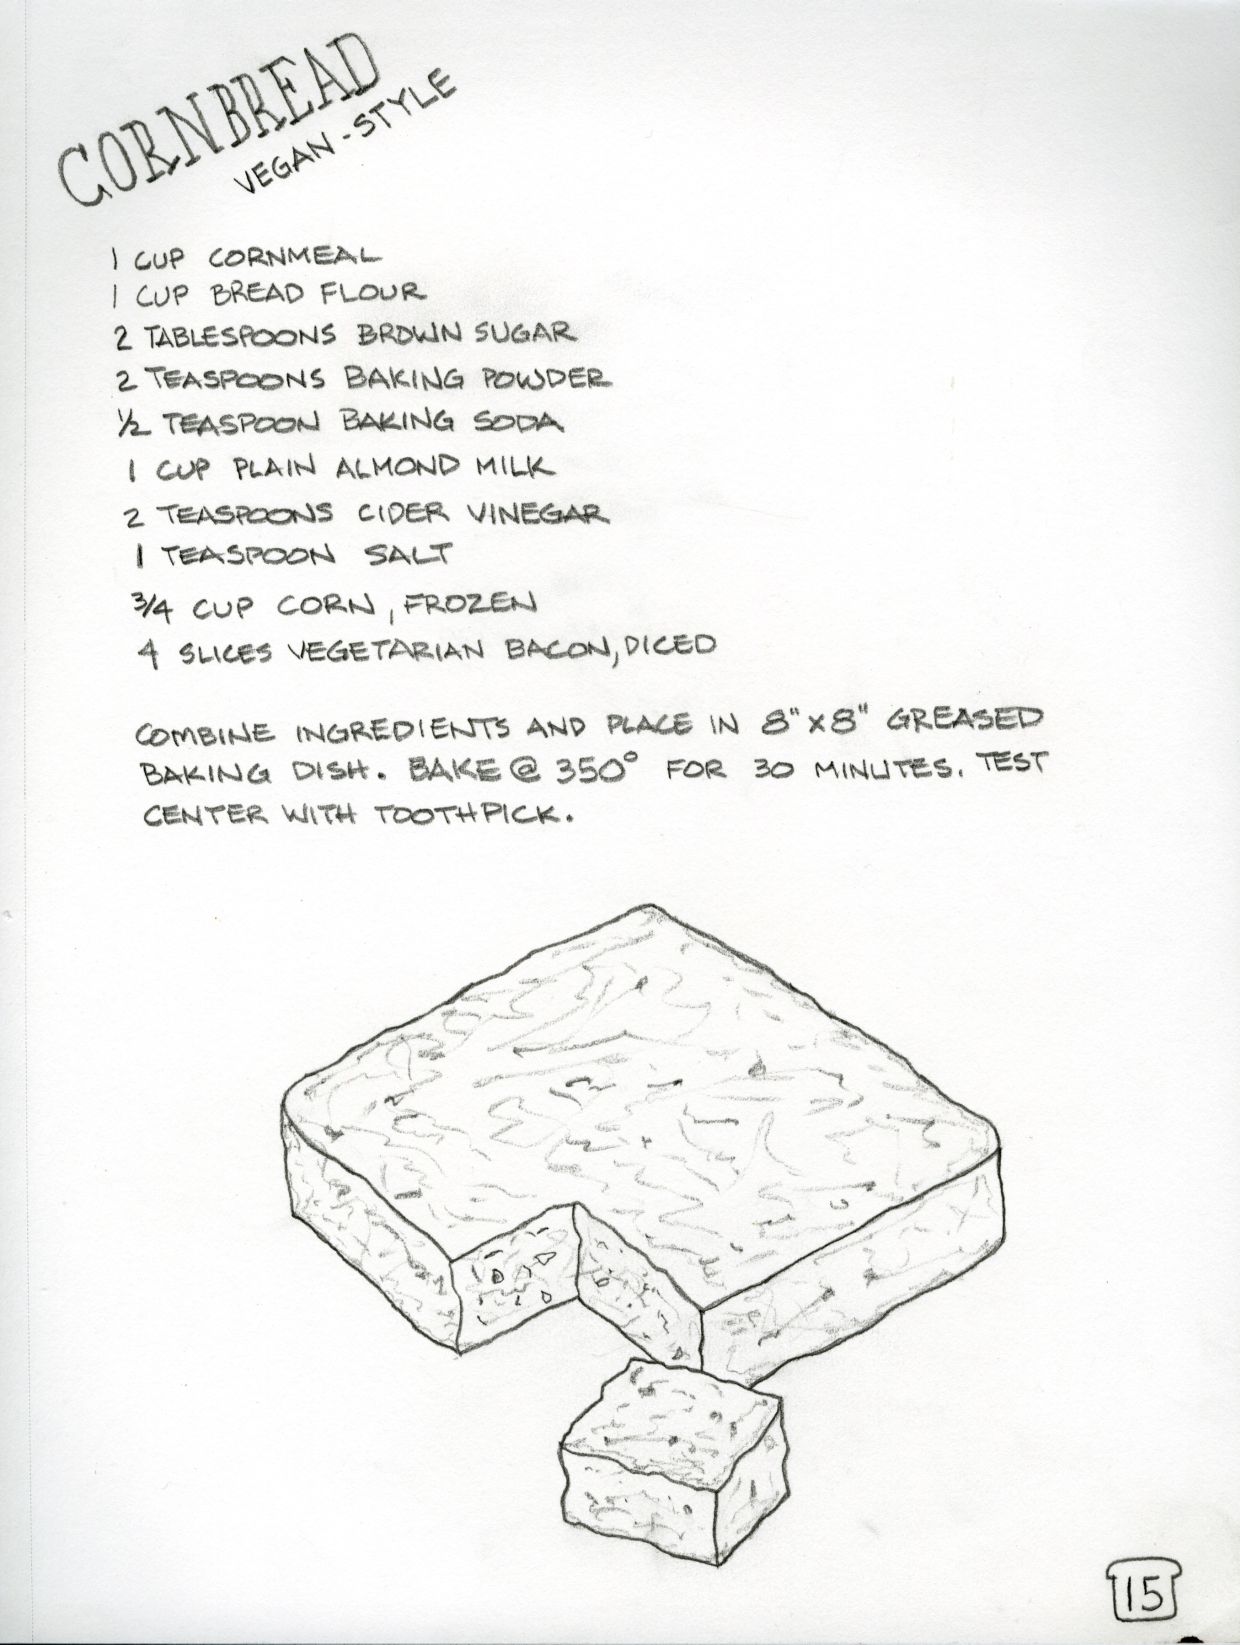 CORNBREAD
VEGAN-STYLE
1 CUP CORNMEAL
1 CUP BREAD FLOUR
2 TABLESPOONS BROWN SUGAR
2 TEASPOONS BAKING POWDER
1/2 TEASPOON BAKING SODA
1 CUP PLAIN ALMOND MILK
2 TEASPOONS CIDER VINEGAR
1 TEASPOON SALT
3/4 CUP CORN, FROZEN
4 SLICES VEGETARIAN BACON, DICED
COMBINE INGREDIENTS AND PLACE IN 8"X8" GREASED
BAKING DISH. BAKE @ 350° FOR 30 MINUTES. TEST
CENTER WITH TOOTHPICK.
15